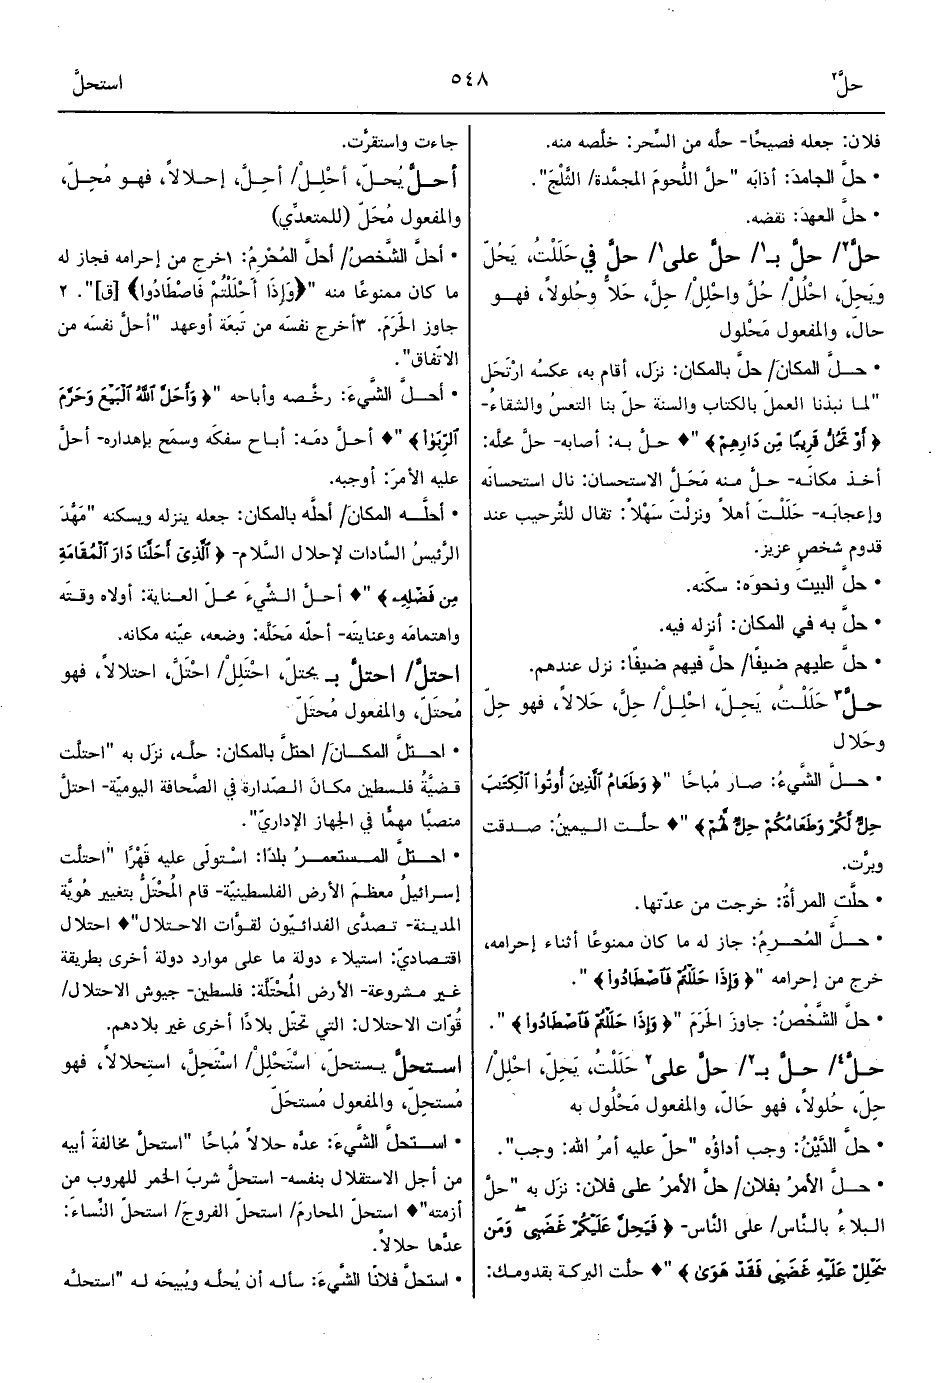 حلَّ٢
٥٤٨
استحلَّ
فلان: جعله فصيحًا- حلَّه من السِّحر: خلَّصه منه.
• حلَّ الجامدَ: أذابَه "حلَّ اللُّحومَ المجمَّدة/ الثَّلْجَ".
• حلَّ العهدَ: نقضه.
حلَّ٢/ حلَّ بـ١/ حلَّ على١/ حلَّ في حَلَلْتُ، يَحُلّ
ويَحِلّ، احْلُلْ/ حُلَّ واحْلِلْ/ حِلَّ، حَلاًّ وحُلولاً، فهـو
حالّ، والمفعول مَحْلول
• حـلَّ المكانَ/ حلَّ بالمكان: نزَل، أقام به، عكسُه ارْتَحَل
"لما نبذنا العملَ بالكتاب والسنة حلّ بنا التعسُ والشقاءُ-
﴿ أَوْ تَحُلُّ قَرِيبًا مِّن دَارِهِمْ ﴾ "♦ حـلَّ بـه: أصابه- حلَّ محلَّه:
أخـذ مكانَـه- حـلَّ مـنه مَحَـلَّ الاستحسان: نال استحسانَه
وإعجابَـه- حَلَلْـتَ أهلاً ونزلْـتَ سَهْلاً: تقال للتَّرحيب عند
قدوم شخصٍ عزيز.
• حلَّ البيتَ ونحوَه: سكَنه.
• حلَّ به في المكان: أنزله فيه.
• حلَّ عليهم ضيفًا/ حلَّ فيهم ضيفًا: نزل عندهم.
حـلَّ٣ حَلَلْـتُ، يَحِـلّ، احْلِـلْ/ حِلَّ، حَلالاً، فهو حِلّ
وحَلال
• حـلَّ الشَّـيءُ: صـار مُباحًا "﴿ وَطَعَامُ الَّذِينَ أُوتُوا الْكِتَٰبَ
حِلٌّ لَّكُمْ وَطَعَامُكُمْ حِلٌّ لَّهُمْ ﴾ "♦ حلَّـت الـيمينُ: صـدقت
وبرَّت.
• حلَّتِ المرأةُ: خرجت من عدّتها.
• حـلَّ المُحـرِمُ: جاز له ما كان ممنوعًا أثناء إحرامه،
خرج من إحرامه "﴿ وَإِذَا حَلَلْتُمْ فَاصْطَادُوا ﴾ ".
• حلَّ الشَّخصُ: جاوَز الحَرَمَ "﴿ وَإِذَا حَلَلْتُمْ فَاصْطَادُوا ﴾ ".
حـلَّ٤/ حـلَّ بـ٢/ حلَّ على٢ حَلَلْتُ، يَحِلّ، احْلِلْ/
حِلَّ، حُلولاً، فهو حَالّ، والمفعول مَحْلول به
• حلَّ الدَّيْنُ: وجب أداؤه "حلَّ عليه أمرُ الله: وجب".
• حـلَّ الأمرُ بفلان/ حلَّ الأمرُ على فلان: نزل به "حلَّ
الـبلاءُ بالنـَّاس/ على النَّاس- ﴿ فَيَحِلَّ عَلَيْكُمْ غَضَبِي وَمَن
يَحْلِلْ عَلَيْهِ غَضَبِي فَقَدْ هَوَىٰ ﴾ "♦ حلَّت البركة بقدومـك:
جاءت واستقرَّت.
أحـلَّ يُحـلّ، أَحْلِـلْ/ أَحِـلَّ، إحـلالاً، فهـو مُحِـلّ،
والمفعول مُحَلّ (للمتعدِّي)
• أحلَّ الشَّخصُ/ أحلَّ المُحْرِمُ: ١خرج من إحرامه فجاز له
ما كان ممنوعًا منه "﴿وَإِذَا أَحْلَلْتُمْ فَاصْطَادُوا﴾ [ق]". ٢
جاوز الحَرَمَ. ٣أخرج نفسَه من تَبعَة أوعهد "أحلَّ نفسَه من
الاتّفاق".
• أحـلَّ الشَّيءَ: رخَّصه وأباحه "﴿ وَأَحَلَّ اللهُ الْبَيْعَ وَحَرَّمَ
الرِّبَوٰا ﴾ "♦ أحـلَّ دمَـه: أبـاح سفكَه وسمَح بإهداره- أحلَّ
عليه الأمرَ: أوجبه.
• أحلَّـه المكانَ/ أحلَّه بالمكان: جعله ينزله ويسكنه "مَهَّدَ
الرَّئيسُ السَّادات لإحلال السَّلام- ﴿ الَّذِي أَحَلَّنَا دَارَ الْمُقَامَةِ
مِن فَضْلِهِ ﴾ "♦ أحـلَّ الـشَّيءَ محلَّ العناية: أولاه وقتَه
واهتمامَه وعنايتَه- أحلَّه مَحَلَّه: وضعه، عيّنه مكانه.
احتلَّ/ احتلَّ بـ يحتلّ، احْتَلِلْ/ احْتَلَّ، احتلالاً، فهو
مُحتَلّ، والمفعول مُحتَلّ
• احـتلَّ المكـانَ/ احتلَّ بالمكان: حلَّه، نزَل به "احتلَّت
قضيَّةُ فلسطين مكانَ الصّدارة في الصّحافة اليوميّة- احتلّ
منصبًا مهمًّا في الجهاز الإداريّ".
• احـتلَّ المـستعمـرُ بلدًا: اسْتولَى عليه قَهْرًا "احتلَّت
إسرائيلُ معظمَ الأرض الفلسطينيّة- قام المُحْتَلُّ بتغيير هُويَّة
المدينـة- تـصدَّى الفدائـيّون لقوَّات الاحتلال"♦ احتلال
اقتـصاديّ: استيلاء دولة ما على موارد دولة أخرى بطريقة
غـير مـشروعة- الأرض المُحْتَلَّة: فلسطين- جيوش الاحتلال/
قُوّات الاحتلال: التي تحْتلّ بلادًا أخرى غير بلادهم.
استحلَّ يـستحلّ، اسْتَحْلِلْ/ اسْتَحِلَّ، استحلالاً، فهو
مُستحِلّ، والمفعول مُستحَلّ
• استحلَّ الشَّيءَ: عدّه حلالاً مُباحًا "استحلَّ مخالفةَ أبيه
من أجل الاستقلال بنفسه- استحلَّ شربَ الخمر للهروب من
أزمته"♦ استحلّ المحارمَ/ استحلّ الفروجَ/ استحلّ النِّساءَ:
عدَّها حلالاً.
• استحلَّ فلانًا الشَّيءَ: سأله أن يُحلَّه ويُبيحَه لـه "استحلَّـه